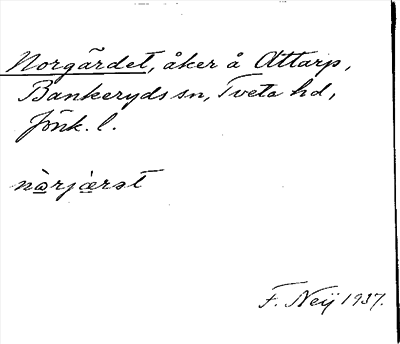 Norgärdet, åker å Attarp,
Bankeryds sn, Tveta hd,
Jönk. l.
F. Neij 1937.